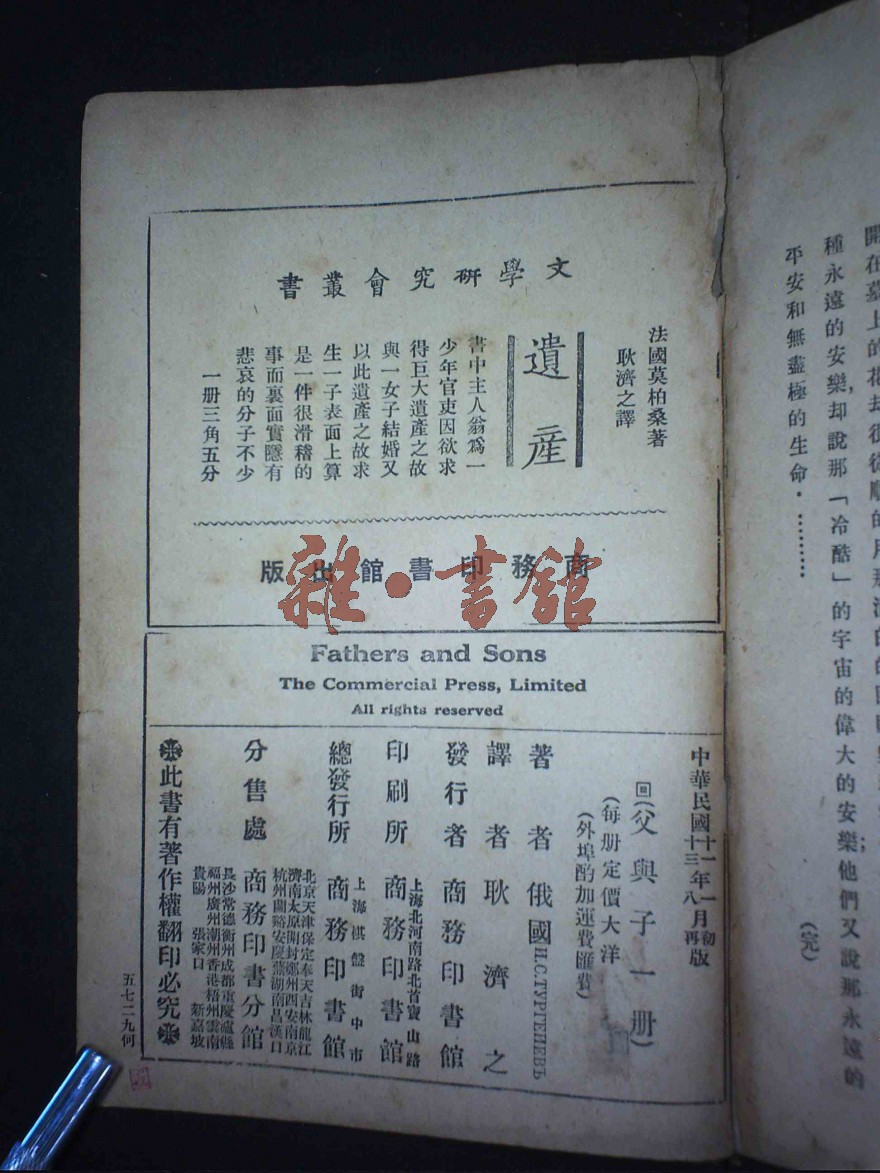 文學研究會叢書
法國莫柏桑著
耿濟之譯
遺產
書中主人翁爲一
少年官吏因欲求
得巨大遺產之故
與一女子結婚又
以此遺產之故求
生一子表面上算
是一件很滑稽的
事而裏面實隱有
悲哀的分子不少
一册三角五分
商務印書館出版
雜·書館
Fathers and Sons
The Commercial Press, Limited
All rights reserved
中華民國十一年一月初版
十三年八月再版
回(父與子一册)
(每册定價大洋
(外埠酌加運費匯費)
著者 俄國 И.С.ТУРГЕНЕВЪ
譯者 耿濟之
發行者 商務印書館
印刷所 上海北河南路北首寶山路 商務印書館
總發行所 上海棋盤街中市 商務印書館
分售處 商務印書分館
北京天津保定奉天吉林龍江
濟南太原開封鄭州西安南京
杭州蘭谿安慶蕪湖南昌漢口
長沙常德衡州成都重慶瀘縣
福州廣州潮州香港梧州雲南
貴陽 張家口 新嘉坡
此書有著作權翻印必究
五七二九何
種永遠的安樂,却說那「冷酷」的宇宙的偉大的安樂;他們又說那永遠的
平安和無盡極的生命·………
(完)